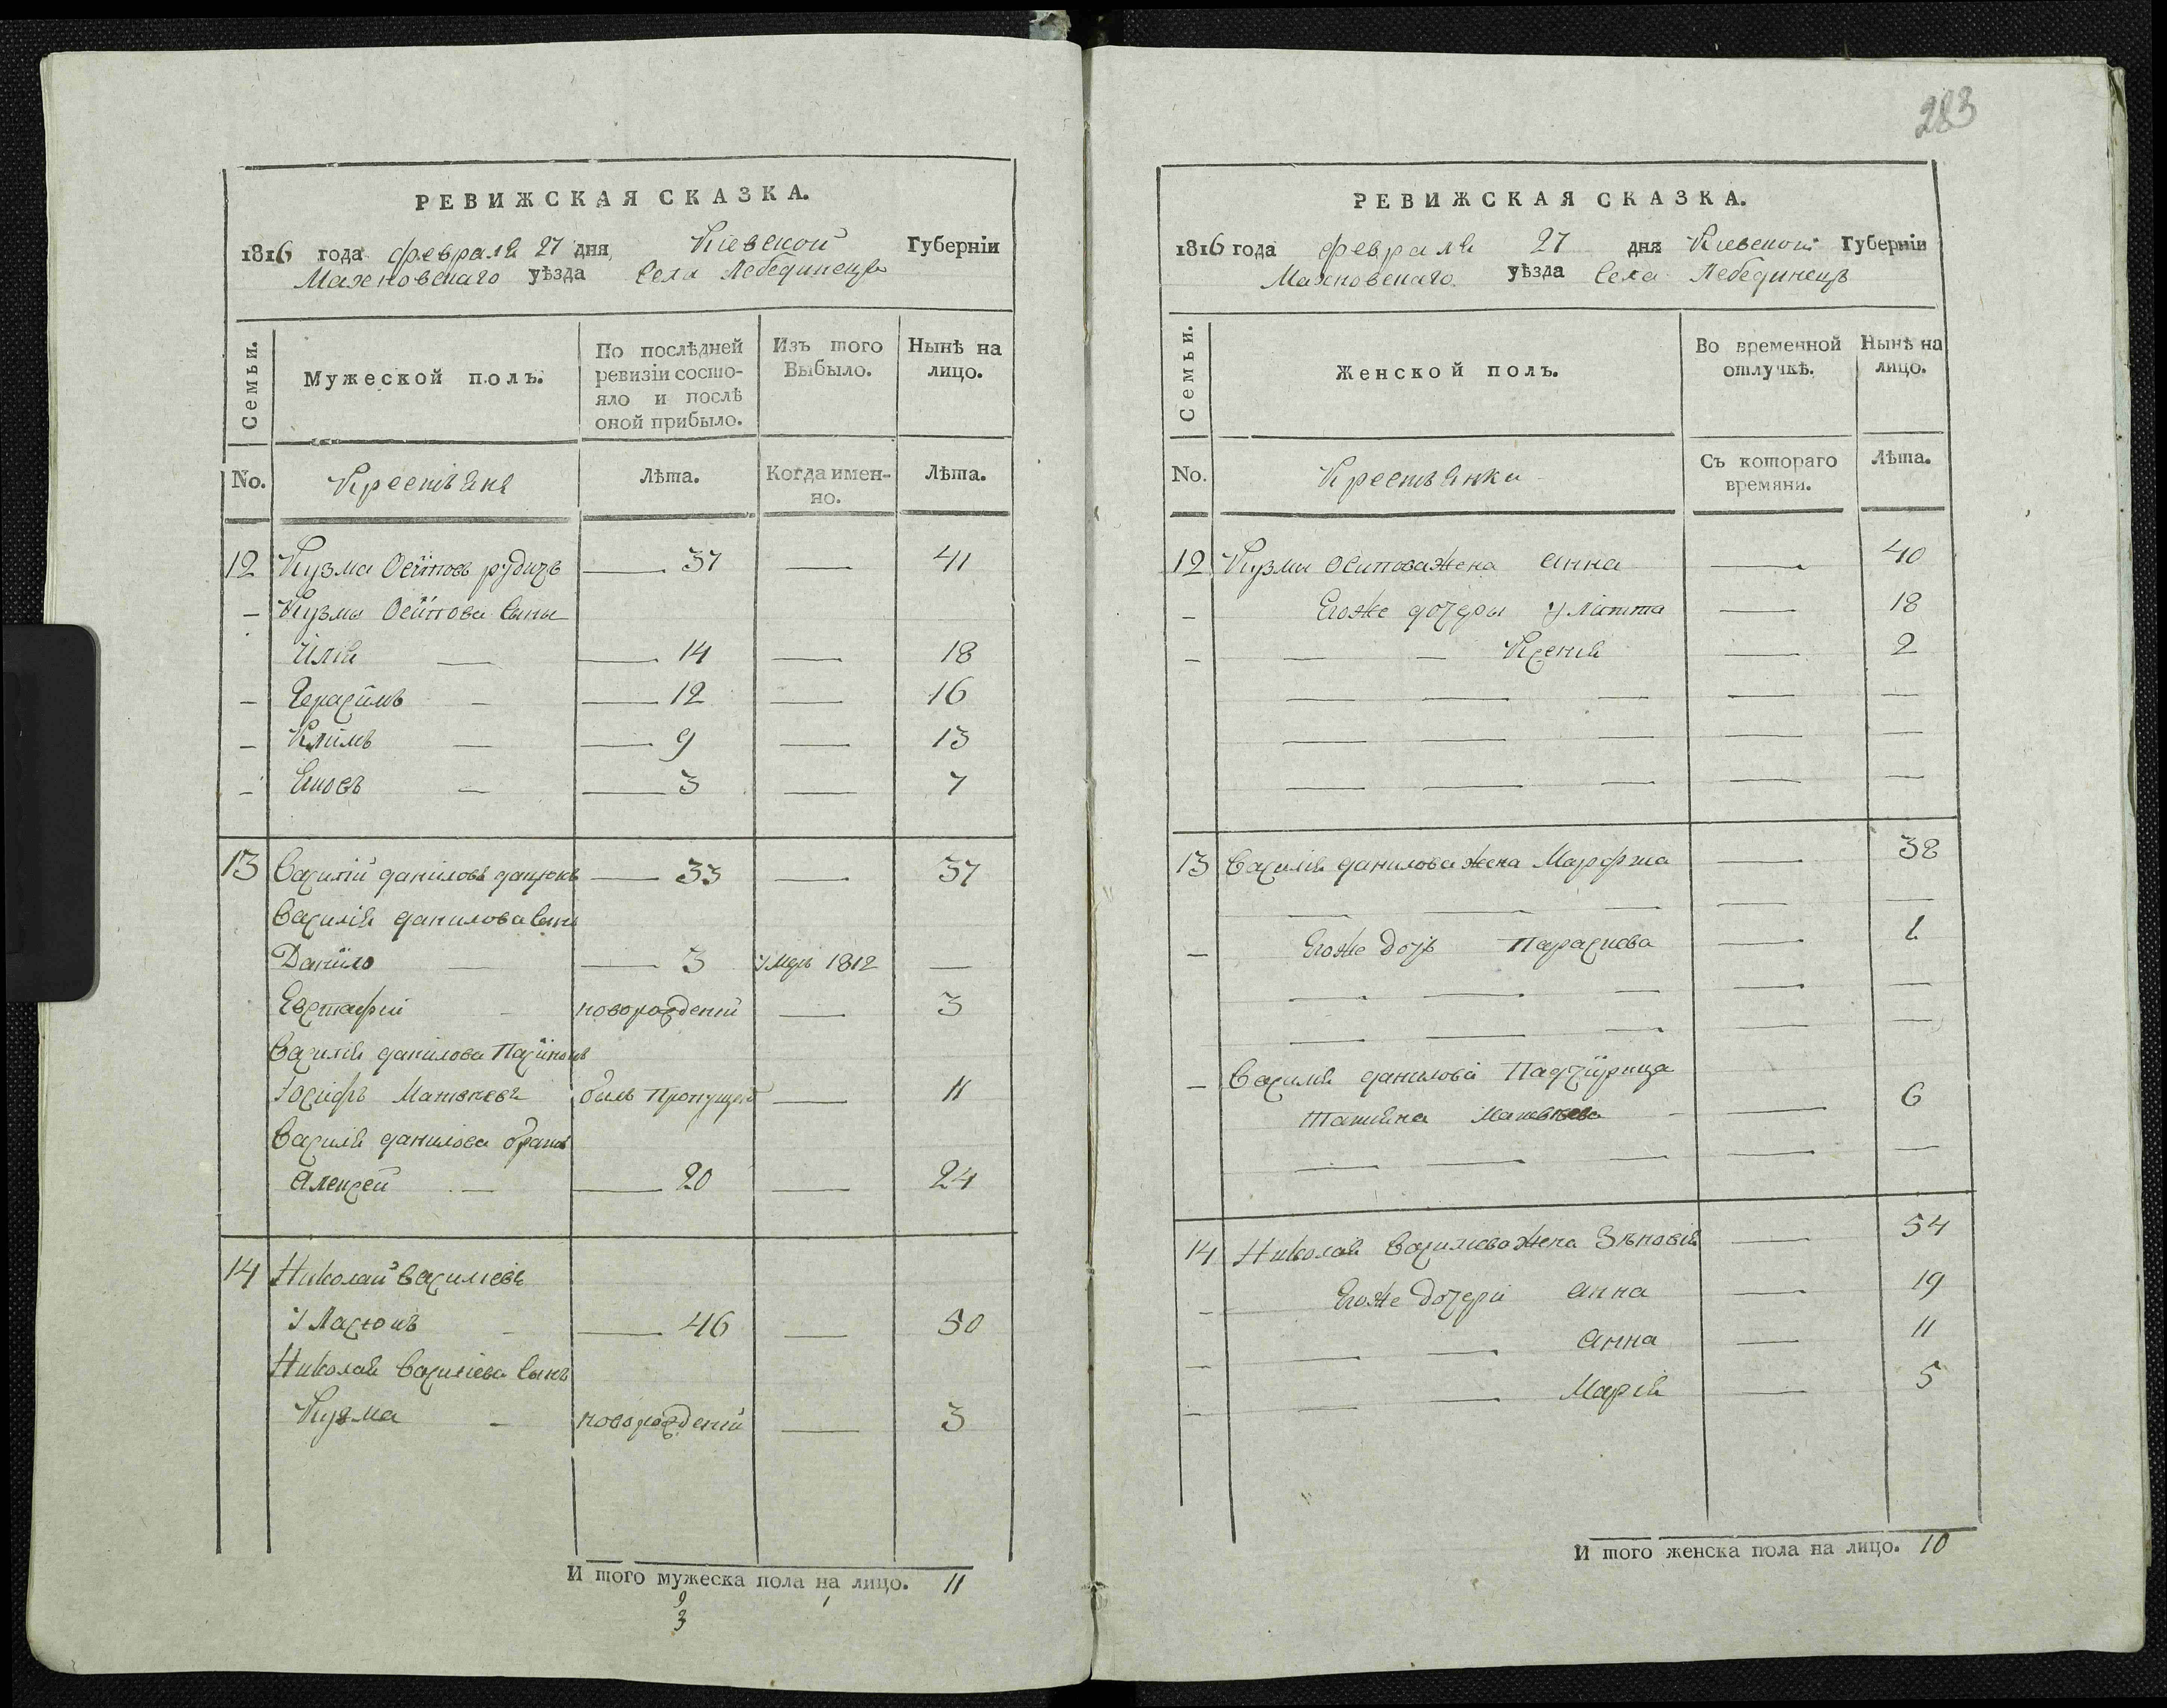 283
РЕВИЖСКАЯ СКАЗКА.
1816 года февраля 27 дня Киевской Губерніи
Махновскаго уѣзда Села Лебединецъ
Семьи.
Мужеской полъ.
По послѣдней ревизіи состояло и послѣ оной прибыло.
Изъ того Выбыло.
Нынѣ на лицо.
No. Крестьяня Лѣта. Когда именно. Лѣта.
12 Кузма Осиповъ рудичъ — 37 — 41
— Кузмы Осипова сыны
Илія — — 14 — 18
— Герасимъ — — 12 — 16
— Климъ — — 9 — 13
— — — 3 — 7
13 Василій даниловъ дацюкъ — 33 — 37
Василія данилова сынъ
Данило — — 3 умеръ 1812 —
Евстафій — новорожденій — 3
Василія данилова Пасинокъ
Іосифъ Матвѣевъ былъ пропущенъ — 11
Василія данилова братъ
Алексей — — 20 — 24
14 Николай Василіевъ
Уласюкъ — — 46 — 50
Николая Василіева сынъ
Кузма — новорожденій — 3
И того мужеска пола на лицо. 11
9 1
3
РЕВИЖСКАЯ СКАЗКА.
1816 года февраля 27 дня Киевской Губерніи
Махновскаго уѣзда Села Лебединецъ
Семьи.
Женской полъ.
Во временной отлучкѣ.
Нынѣ на лицо.
No. Крестьянки Съ котораго времяни. Лѣта.
12 Кузмы Осипова жена Анна — 40
— Егоже дочеры Улитта — 18
— — — Ксенія — 2
— — — — —
— — — — —
— — — — —
13 Василія данилова жена Марфина — 38
— — — — —
— Егоже дочь Параскова — 1
— — — — —
— — — — —
— Василія данилова Падчирица
Татияна Матвѣева — — 6
— — — — —
14 Николая Василіева жена Зѣновія — 54
— Егоже дочери Анна — 19
— — — Анна — 11
— — — Марія — 5
И того женска пола на лицо. 10